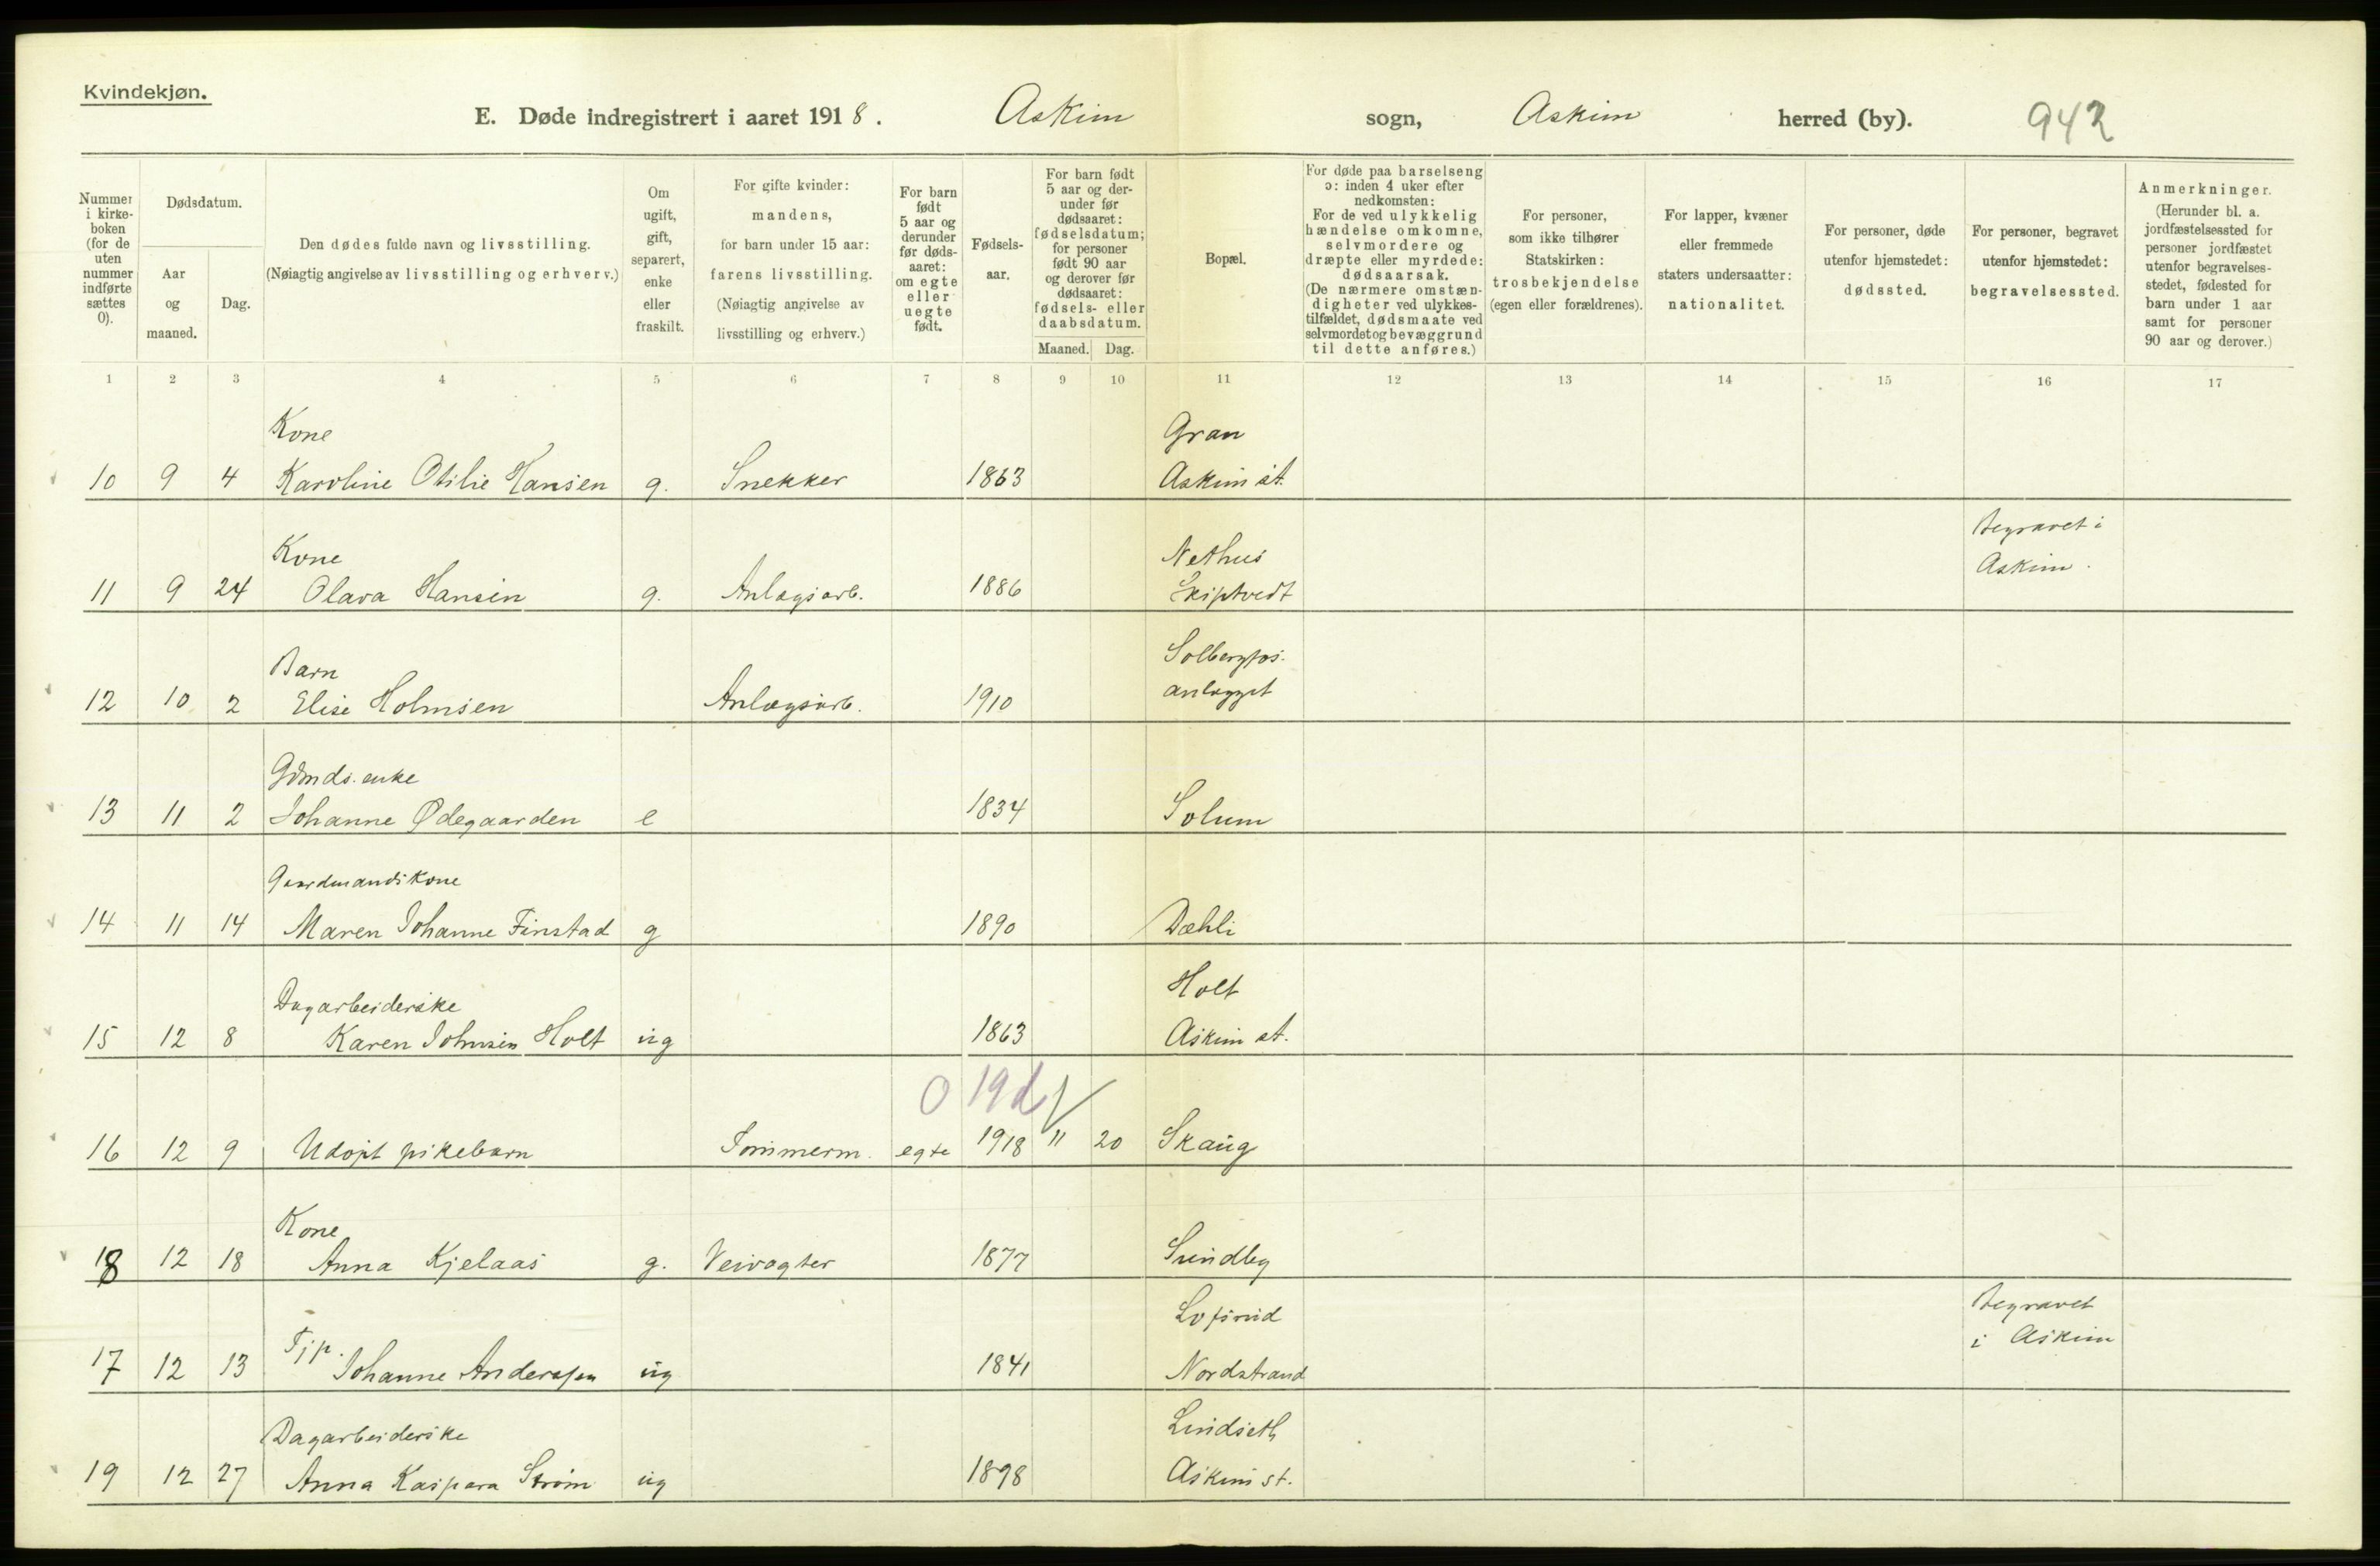 Kvindekjøn.
E. Døde indregistrert i aaret 1918. Askim sogn, Askim herred (by). 942
Nummer i kirkeboken (for de uten nummer indførte sættes 0).
Dødsdatum.
Aar og maaned.
Dag.
Den dødes fulde navn og livsstilling.
(Nøiagtig angivelse av livsstilling og erhverv.)
Om ugift, gift, separert, enke eller fraskilt.
For gifte kvinder: mandens, for barn under 15 aar: farens livsstilling. (Nøiagtig angivelse av livsstilling og erhverv.)
For barn født 5 aar og derunder før dødsaaret: om egte eller uegte født.
Fødselsaar.
For barn født 5 aar og derunder før dødsaaret: fødselsdatum; for personer født 90 aar og derover før dødsaaret: fødsels- eller daabsdatum.
Maaned. Dag.
Bopæl.
For døde paa barselseng ɔ: inden 4 uker efter nedkomsten: For de ved ulykkelig hændelse omkomne, selvmordere og dræpte eller myrdede: dødsaarsak. (De nærmere omstændigheter ved ulykkestilfældet, dødsmaate ved selvmordet og bevæggrund til dette anføres.)
For personer, som ikke tilhører Statskirken: trosbekjendelse (egen eller forældrenes).
For lapper, kvæner eller fremmede staters undersaatter: nationalitet.
For personer, døde utenfor hjemstedet: dødssted.
For personer, begravet utenfor hjemstedet: begravelsessted.
Anmerkninger. (Herunder bl. a. jordfæstelsessted for personer jordfæstet utenfor begravelsesstedet, fødested for barn under 1 aar samt for personer 90 aar og derover.)
1 2 3 4 5 6 7 8 9 10 11 12 13 14 15 16 17
Kone Gran
10 9 4 Karoline Otilie Hansen g. Snekker 1863 Askim st.
Kone Nethus Begravet i
11 9 24 Olava Hansen g. Anlægsarb. 1886 Skiptvedt Askim.
Barn Solbergfos-
12 10 2 Elise Holmsen Anlægsarb. 1910 anlægget
Gdmds. enke
13 11 2 Johanne Ødegaarden e 1834 Solum
Gaardmandskone
14 11 14 Maren Johanne Finstad g 1890 Dæhli
Dagarbeiderske Holt
15 12 8 Karen Johnsen Holt ug 1863 Askim st.
0 19d
16 12 9 Udøpt pikebarn Tømmerm. egte 1918 11 20 Skaug
Kone
18 12 18 Anna Kjelaas g. Veivogter 1877 Sundby
Fjp. Begravet
17 12 13 Johanne Anderssen ug 1841 Nordstrand i Askim
Dagarbeiderske Lindseth
19 12 27 Anna Kaspara Strøm ug 1898 Askim st.